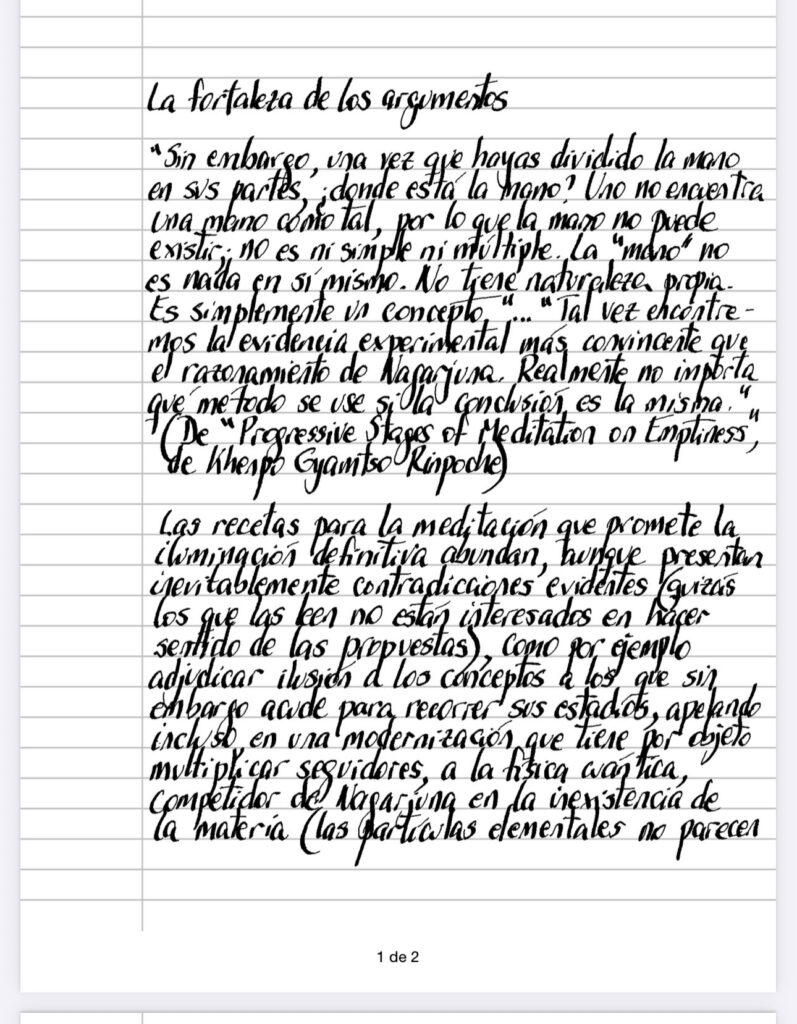 La fortaleza de los argumentos
"Sin embargo, una vez que hayas dividido la mano
en sus partes, ¿donde está la mano? Uno no encuentra
una mano como tal, por lo que la mano no puede
existir; no es ni simple ni múltiple. La "mano" no
es nada en sí mismo. No tiene naturaleza propia.
Es simplemente un concepto."..."Tal vez encontre-
mos la evidencia experimental más convincente que
el razonamiento de Nagarjuna. Realmente no importa
qué método se use si la conclusión es la misma."
(De "Progressive Stages of Meditation on Emptiness",
de Khenpo Gyamtso Rinpoche)
Las recetas para la meditación que promete la
iluminación definitiva abundan, aunque presentan
inevitablemente contradicciones evidentes (quizás
los que las leen no están interesados en hacer
sentido de las propuestas), como por ejemplo
adjudicar ilusión a los conceptos a los que sin
embargo acude para recorrer sus estadios, apelando
incluso, en una modernización que tiene por objeto
multiplicar seguidores, a la física cuántica,
competidor de Nagarjuna en la inexistencia de
la materia (las partículas elementales no parecen
1 de 2